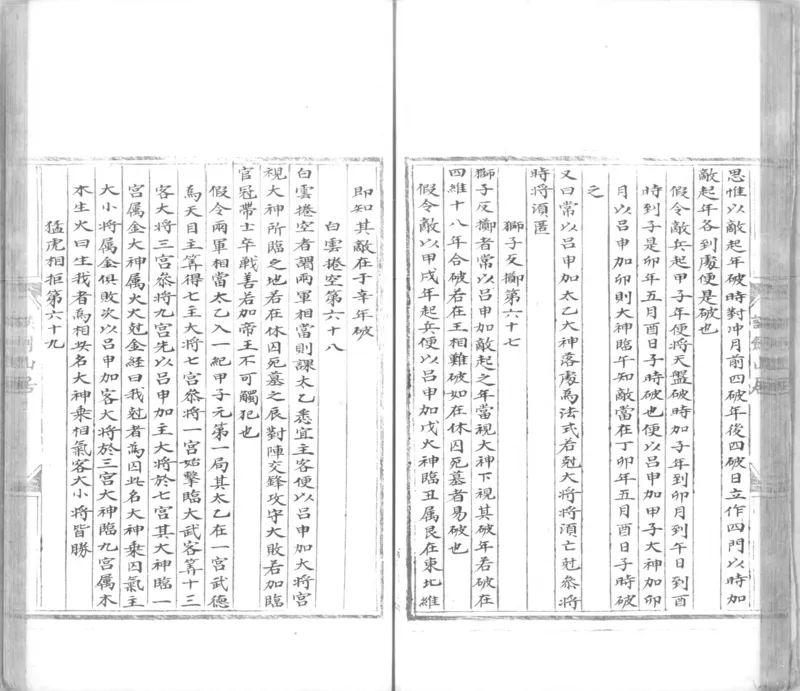 思惟以敵起年破時對冲月前四破年後四破日立作四門以時加
敵起年各到處便是破也
假令敵兵起甲子年便將天盤破時加子年到卯月到午日到酉
時到子是卯年五月酉日子時破也便以吕申加甲子大神加卯
月以吕申加卯則大神臨午知敵當在丁卯年五月酉日子時破
之
又曰常以吕申加太乙大神落處爲法式若尅大將將須亡尅叅將
時將須匿
獅子反擲第六十七
獅子反擲者常以吕申加敵起之年當視大神下視其破年若破在
四維十八年合破若在王相難破如在休囚死墓者易破也
假令敵以甲戌年起兵便以吕申加戊火神臨丑属艮在東北維
即知其敵在于辛年破
白雲捲空第六十八
白雲捲空者謂兩軍相當則課太乙悉宜主客便以吕申加大將宮
視大神所臨之地若在休囚死墓之辰對陣交鋒攻守大敗若加臨
官冠帶士卒戰善若加帝王不可觸犯也
假令兩軍相當太乙入一紀甲子元第一局其太乙在一宮武德
爲天目主筭得七主大將七宮叅將一宮始擊臨大武客筭十三
客大將三宮叅將九宮先以吕申加主大將於七宮其大神臨一
宮属金大神属火火尅金經曰我尅者爲囚此名大神乘囚氣主
大小將属金俱敗次以吕申加客大將於三宮大神臨九宮属木
木生火曰生我者爲相此名大神乘相氣客大小將皆勝
猛虎相拒第六十九